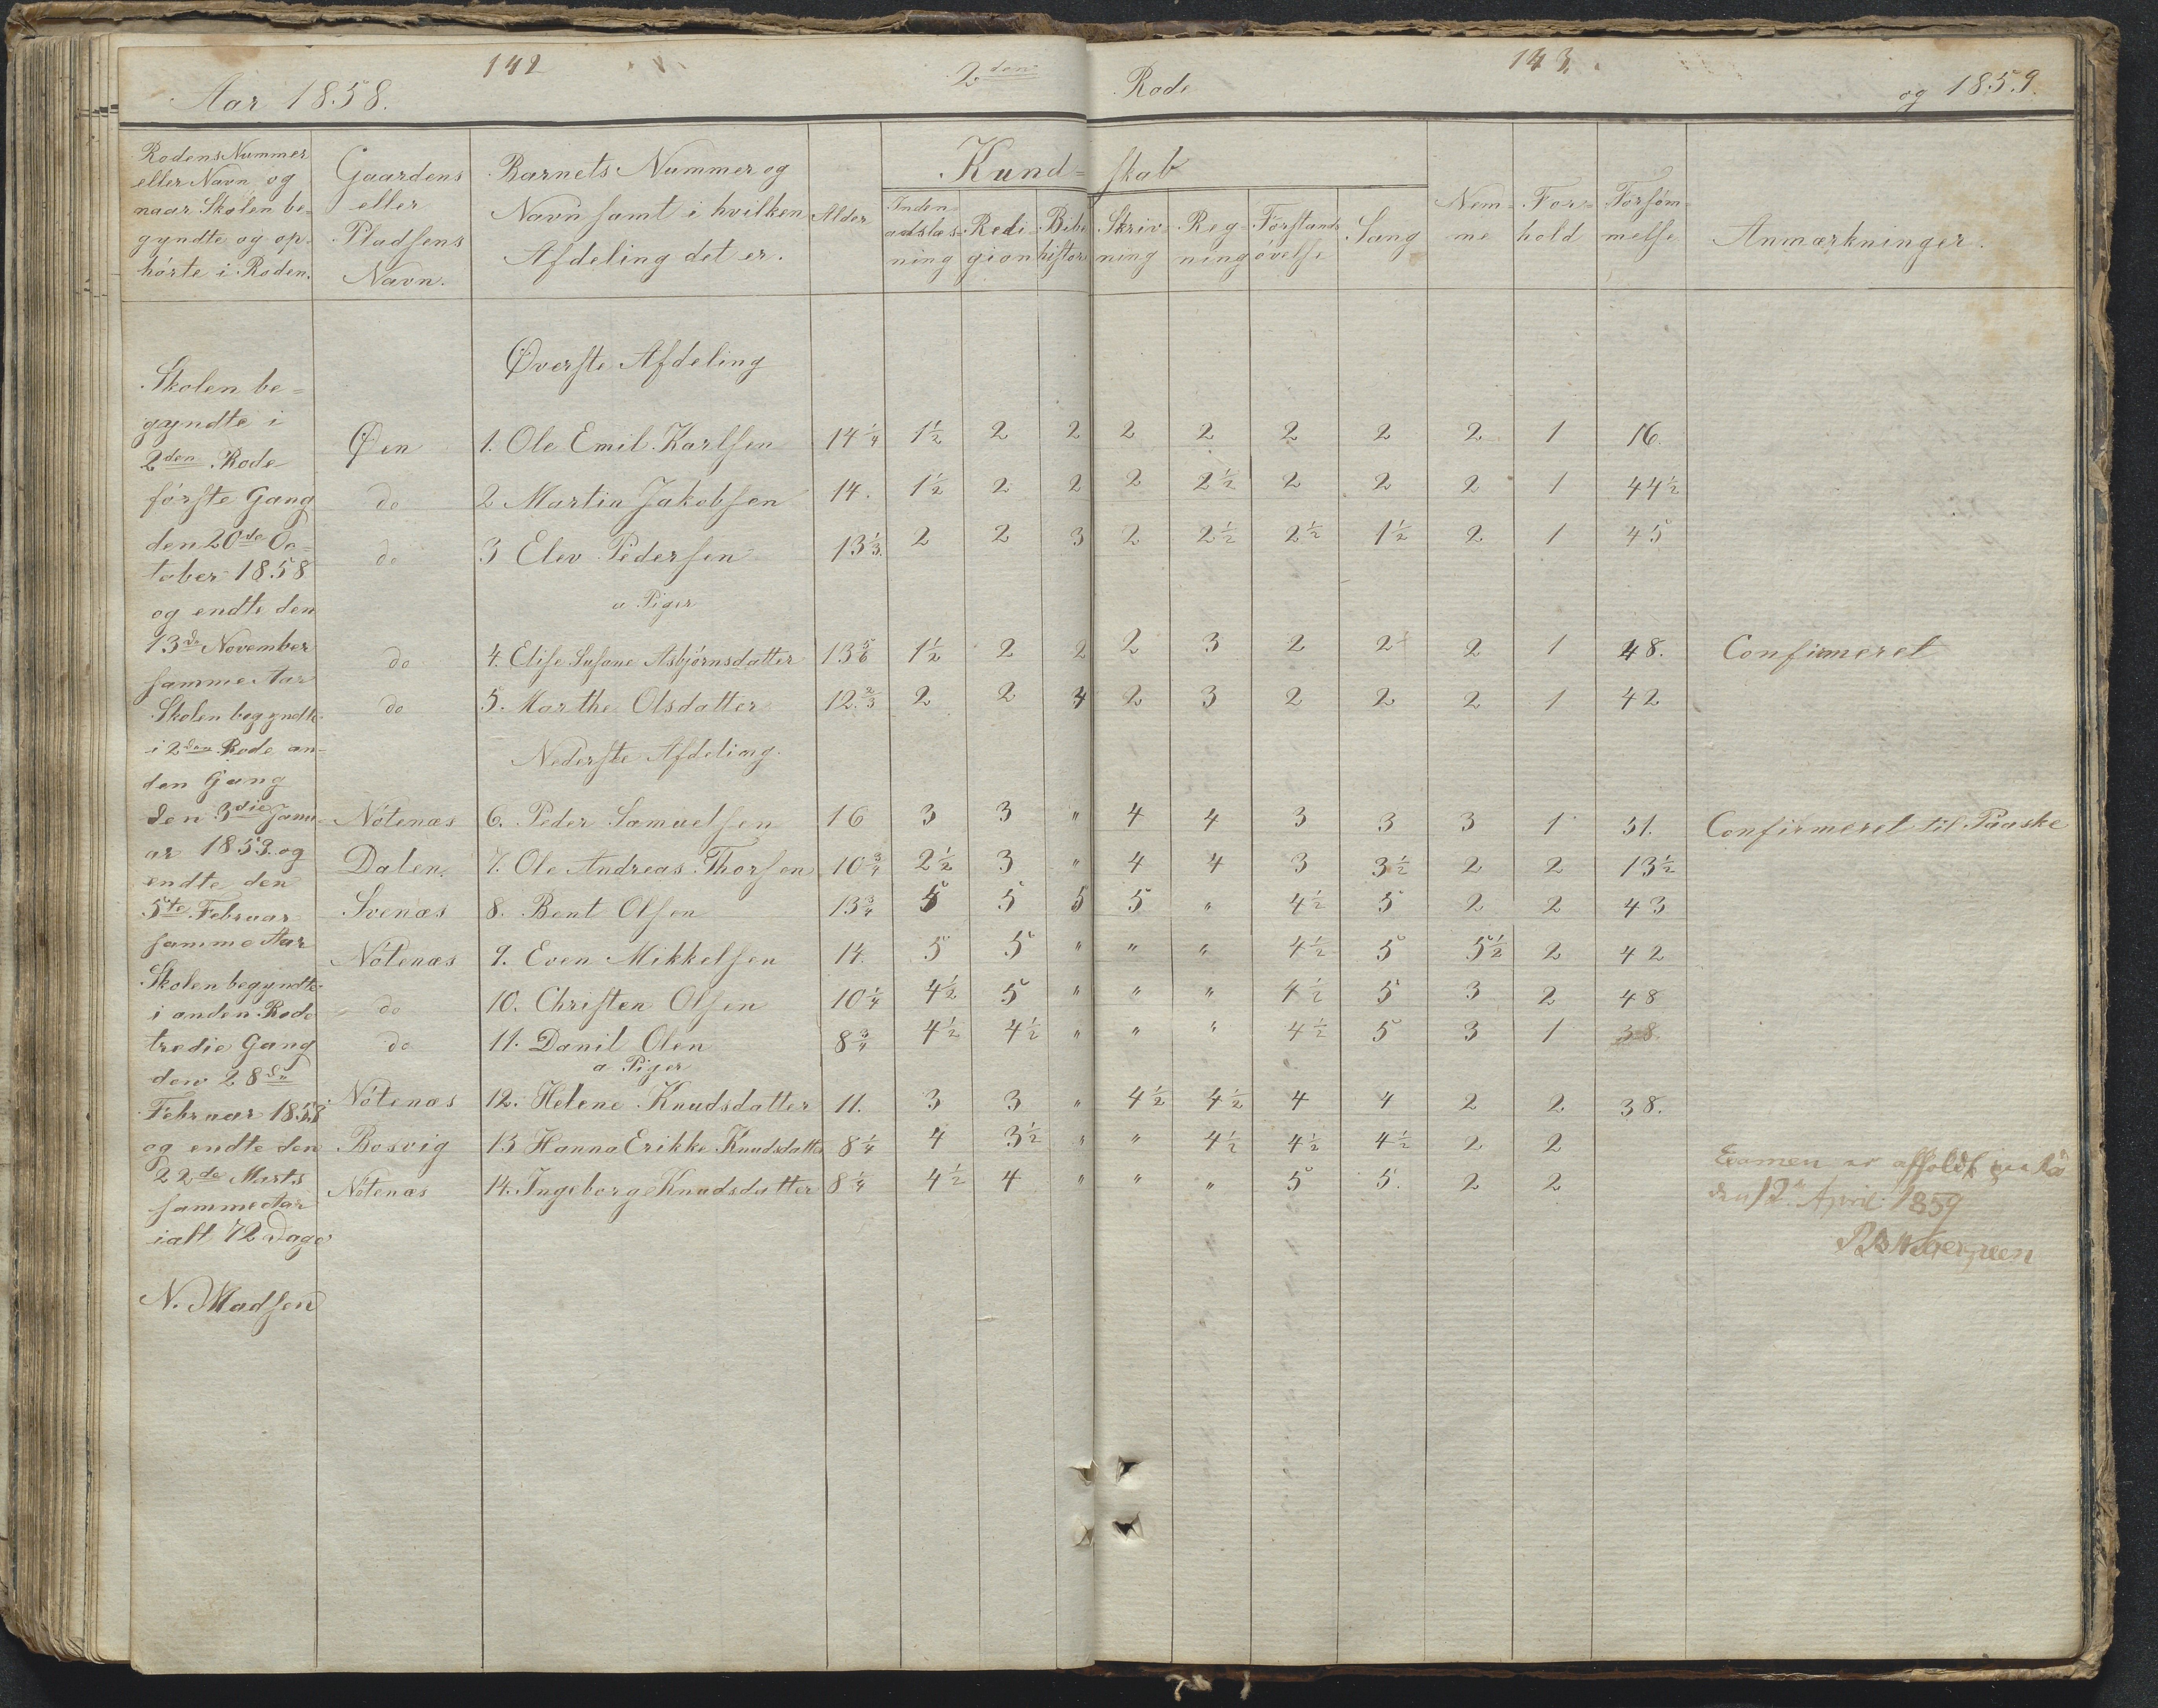 142
143.
Aar 1858.
2den
Rode
og 1859.
Rodens Nummer
eller Navn og
naar Skolen be=
gyndte og op-
hørte i Roden.
Gaardens
eller
Pladsens
Navn.
Barnets Nummer og
Navn samt i hvilken
Afdeling det er.
Alder
Kund=
skab
Inden
adslæs=
ning
Redi=
gion
Bibe
histor.
Skriv
ning
Reg=
ning
Forstands
øvelse
Sang
Nem=
me
For=
hold
Forsøm=
melse
Anmærkninger.
Skolen be=
gyndte i
2den Rode
første Gang
den 20de Oc=
tober 1858
og endte den
13de November
samme Aar
Skolen begyndte
i 2den Rode an=
den Gang
den 3die Janu=
ar 1859. og
endte den
5te Februar
samme Aar
Skolen begyndte
i anden Rode
tredie Gang
den 28de
Februar 1858
og endte den
22de Marts
samme Aar
ialt 72 Dage
N. Madsen
Øverste Afdeling
Øen 1. Ole Emil Karlsen 14 1/4 1 1/2 2 2 2 2 2 2 2 1 16.
do 2 Martin Jakobsen 14. 1 1/2 2 2 2 2 1/2 2 2 2 1 44 1/2
do 3 Elev Pedersen 13 1/3. 2 2 3 2 2 1/2 2 1/2 1 1/2 2 1 45
a Piger
do 4. Elise Susane Asbjørnsdatter 13 5/6 1 1/2 2 2 2 3 2 2 2 1 48. Confirmeret
do 5. Marthe Olsdatter 12 2/3 2 2 4 2 3 2 2 2 1 42
Nederste Afdeling.
Nøtenæs 6. Peder Samuelsen 16 3 3 " 4 4 3 3 3 1 31. Confirmeret til Paaske
Dalen. 7. Ole Andreas Thorsen 10 3/4 2 1/2 3 " 4 4 3 3 1/2 2 2 13 1/2
Svenæs 8. Bent Olsen 13 3/4 5 5 5 5 " 4 1/2 5 2 2 43
Nøtenæs 9. Even Mikkelsen 14. 5 5 " " " 4 1/2 5 5 1/2 2 42
do 10. Christen Olsen 10 1/4 4 1/2 5 " " " 4 1/2 5 3 2 48
do 11. Danil Olen 8 3/4 4 1/2 4 1/2 " " " 4 1/2 5 3 1 38
a Piger
Nøtenæs 12. Helene Knudsdatter 11. 3 3 " 4 1/2 4 1/2 4 4 2 2 38.
Bosvig 13 Hanna Erikke Knudsdatter 8 1/4 4 3 1/2 " " 4 1/2 4 1/2 4 1/2 2 2
Nøtenæs 14. Ingeborg Knudsdatter 8 1/4 4 1/2 4 " " " 5 5. 2 2
Examen er afholdt
den 12te April 1859